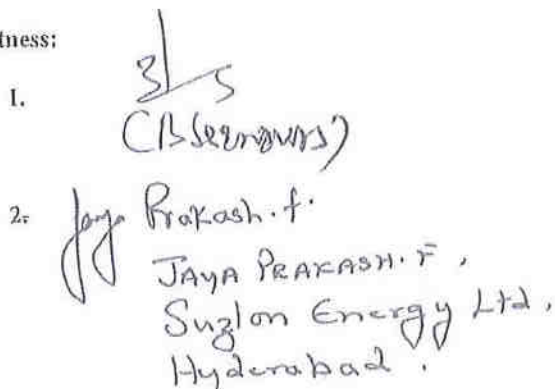 tness:
1.
2. Jaya Prakash. f.
JAYA PRAKASH. F,
Suzlon Energy Ltd.
Hyderabad.